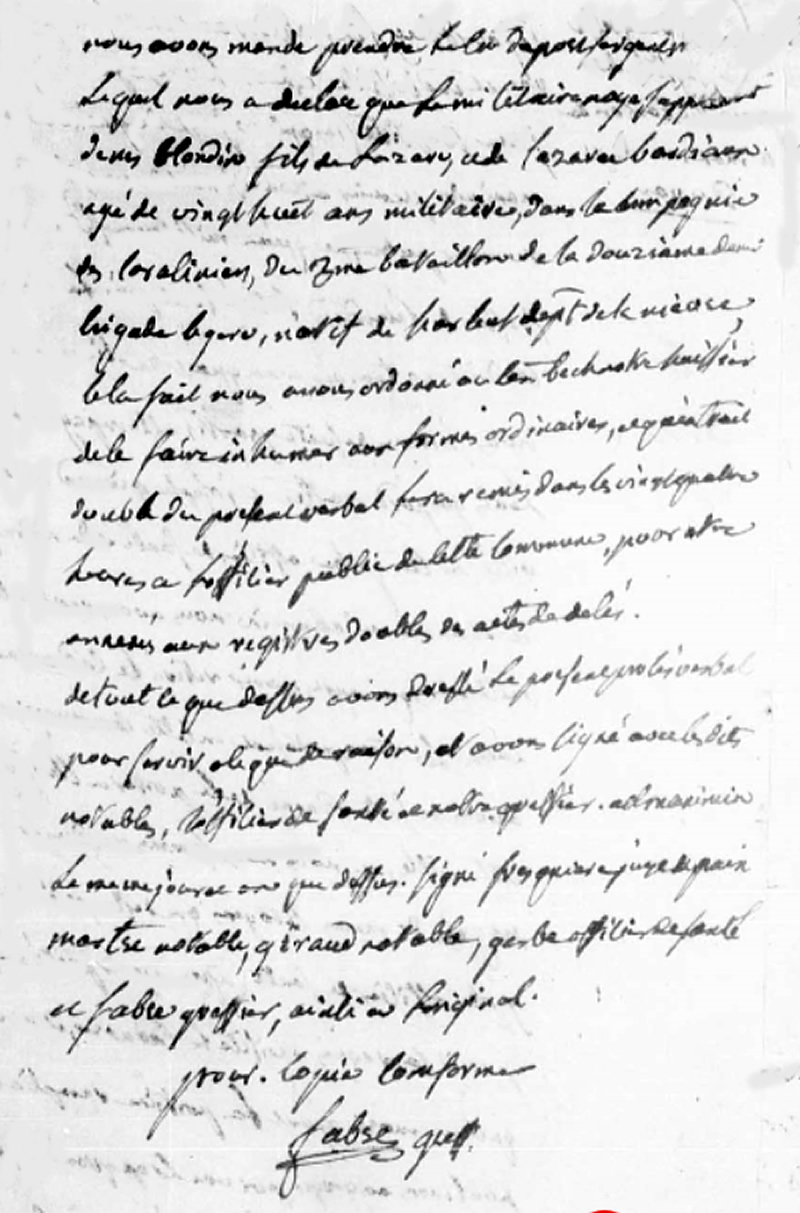 nous avons mande prendre
Lequel nous a declare que le militaire noye
denis blondin fils de Lazare, et de lazare
agé de vingt huit ans militaire, dans la compagnie
des Carabiniers, du 3me bataillon de la douzieme demi
brigade legere, natif de dept de la nievre
Cela fait nous avons ordonné au huissier
de le faire inhumer aux formes ordinaires, et qu'extrait
double du present verbal sera remis dans les vingt quatre
heures a l'officier public de cette Commune, pour etre
annexés aux registres doubles des actes de decés.
de tout ce que dessus avons dressé Le present procès verbal
pour servir a ce que de raison, et avons signé avec lesdits
notables, l'officier de santé et notre greffier. a st maximin
Le meme jour et an que dessus. signé juge de paix
notable, giraud notable, officier de santé
et fabre greffier, ainsi a l'original.
pour. Copie Conforme
fabre greff.